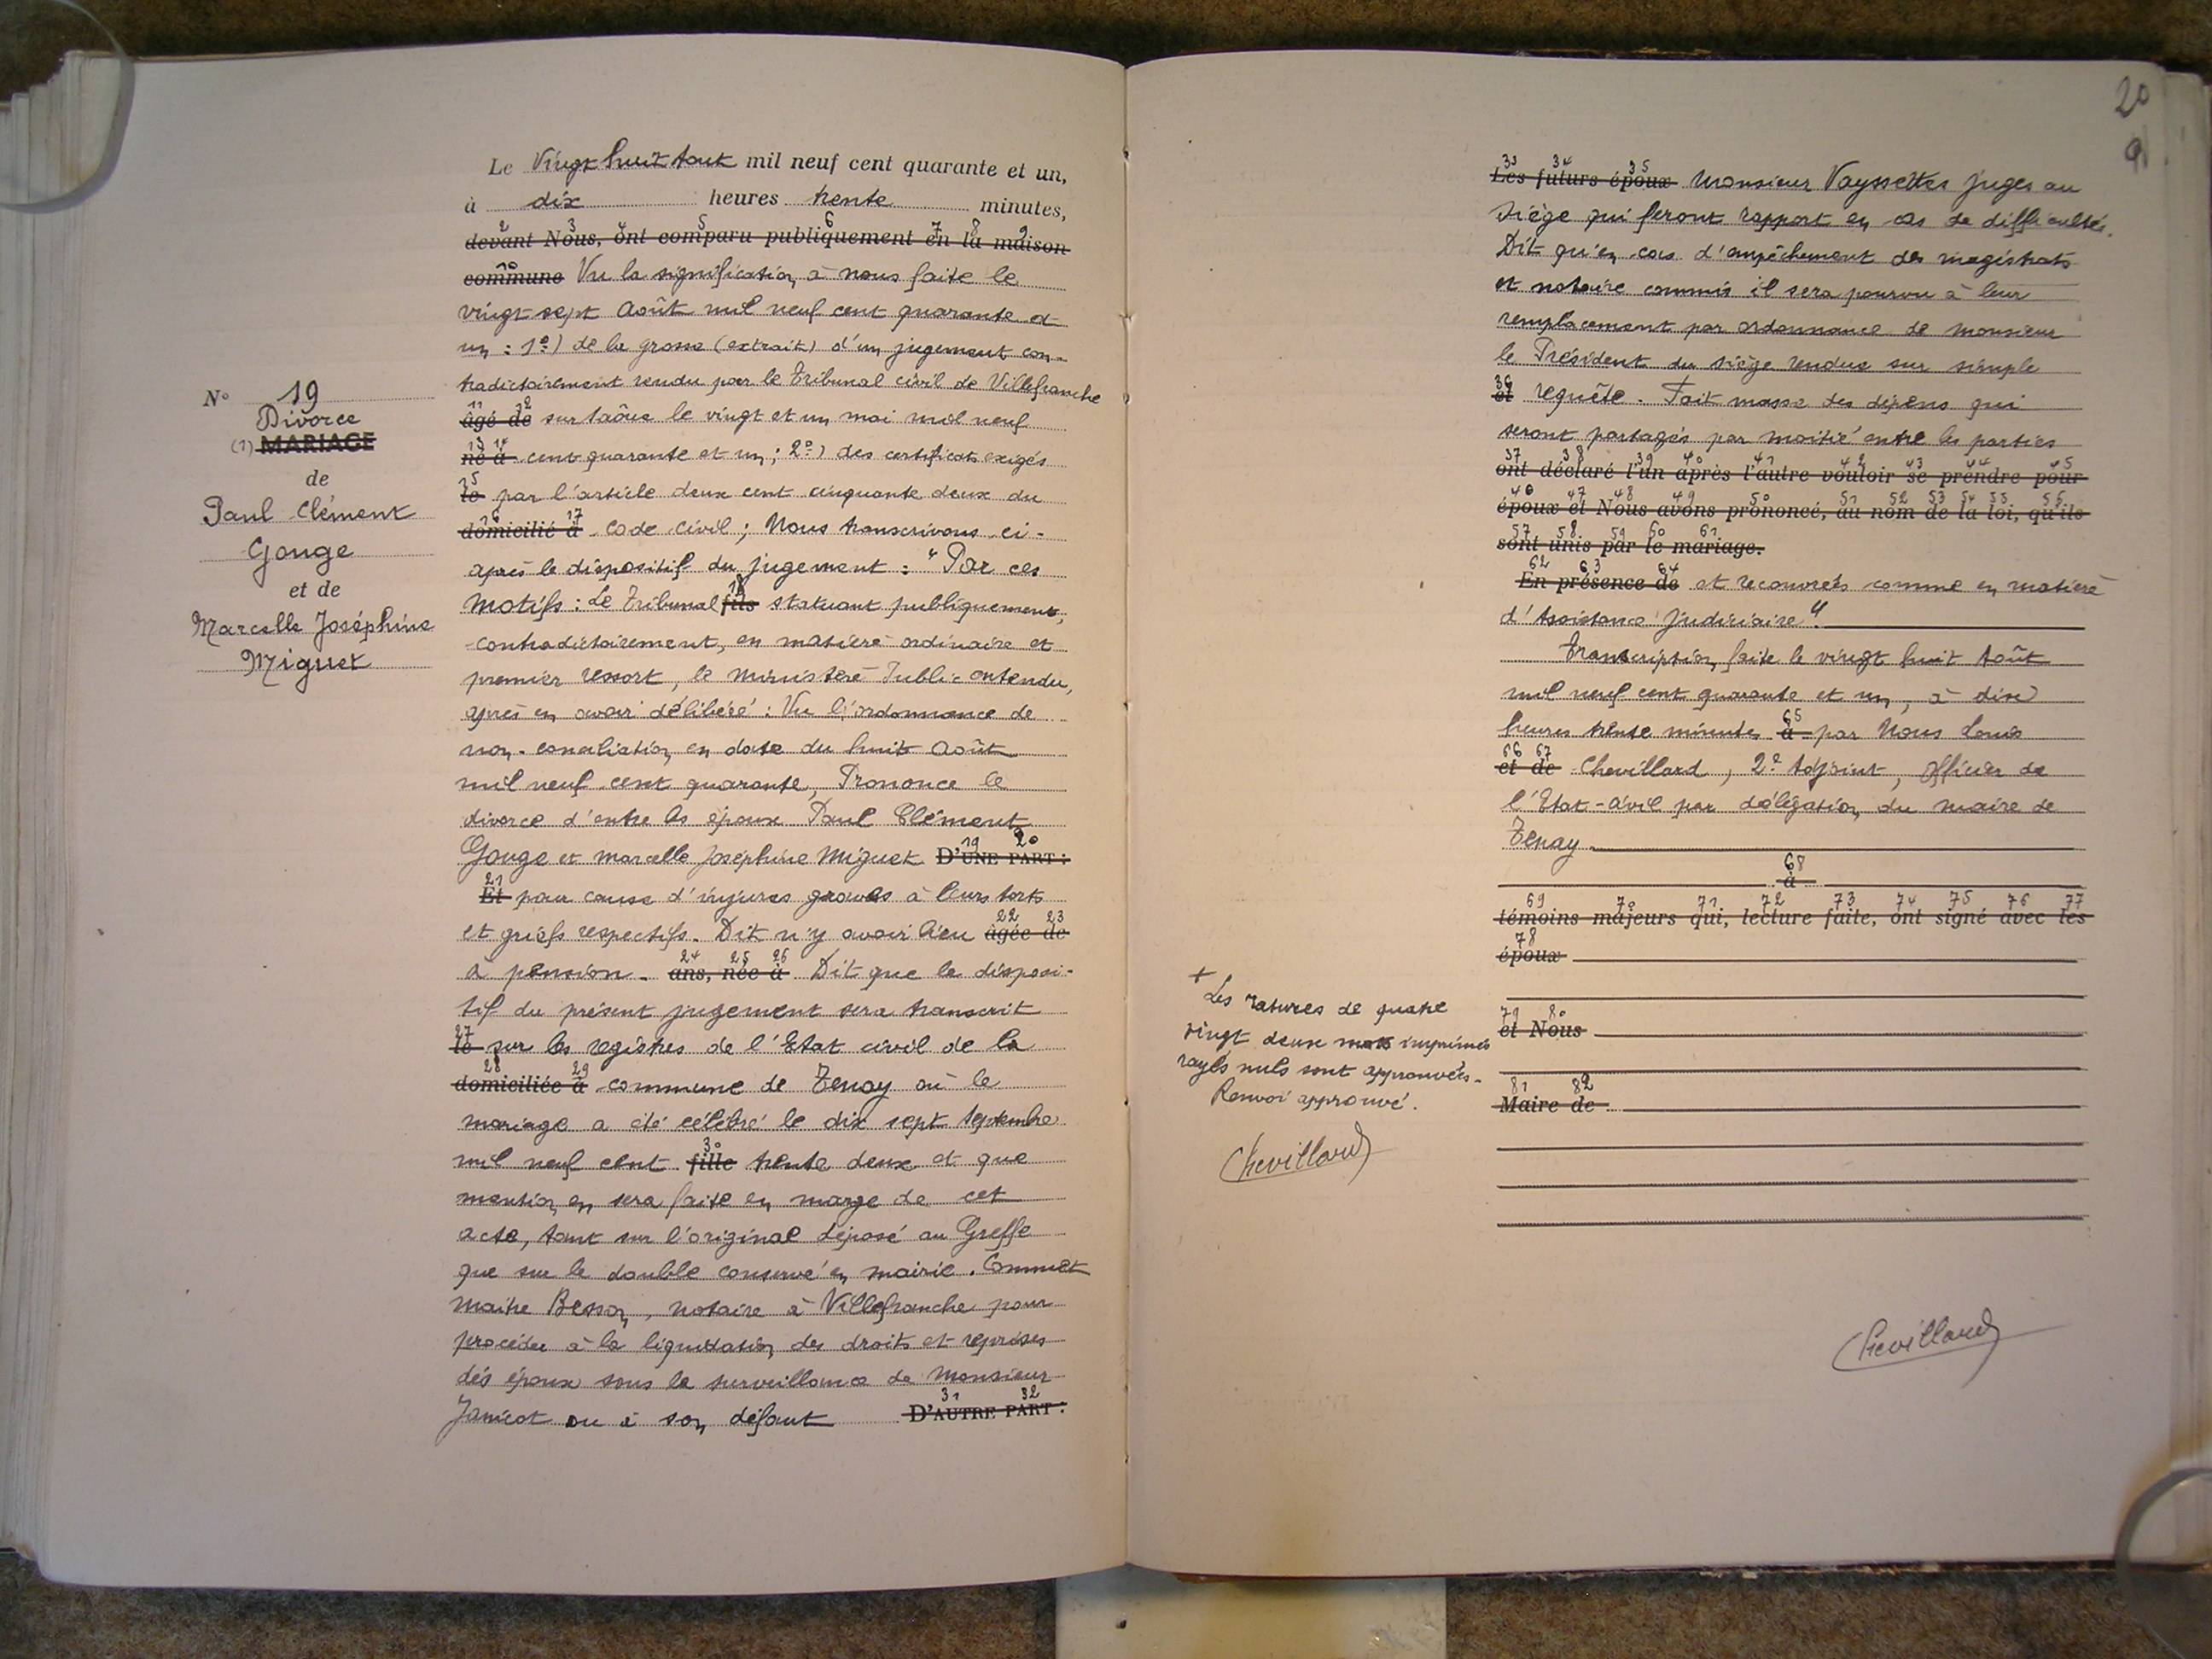 Le Vingt huit Août mil neuf cent quarante et un,
à dix heures trente minutes,
2 3 4 5 6 7 8 9
devant Nous, ont comparu publiquement en la maison
10
commune Vu la signification à nous faite le
vingt sept Août mil neuf cent quarante et
un : 1º) de la grosse (extrait) d'un jugement con-
tradictoirement rendu par le Tribunal civil de Villefranche
11 12
âgé de sur Saône le vingt et un mai mil neuf
13 14
né à cent quarante et un ; 2º) des certificats exigés
15
le par l'article deux cent cinquante deux du
16 17
domicilié à Code civil ; Nous transcrivons ci-
après le dispositif du jugement : "Par ces
18
Motifs : Le Tribunal fils statuant publiquement,
contradictoirement, en matière ordinaire et
premier ressort, le Ministère Public entendu,
après en avoir délibéré : Vu l'ordonnance de
non-conciliation en date du huit Août
mil neuf cent quarante, Prononce le
divorce d'entre les époux Paul Clément
19 20
Gouge et Marcelle Joséphine Miguet D'UNE PART :
21
Et pour cause d'injures graves à leurs torts
22 23
et griefs respectifs. Dit n'y avoir lieu âgée de
24 25 26
à pension. ans, née à Dit que le disposi-
tif du présent jugement sera transcrit
27
le sur les registres de l'Etat civil de la
28 29
domiciliée à commune de Tenay où le
mariage a été célébré le dix sept Septembre
30
mil neuf cent fille trente deux et que
mention en sera faite en marge de cet
acte, tant sur l'original déposé au Greffe
que sur le double conservé en mairie. Commet
Maitre Besson, notaire à Villefranche pour
procéder à la liquidation des droits et reprises
des époux sous la surveillance de Monsieur
31 32
Janicot ou à son défaut D'AUTRE PART :
Nº 19
Divorce
(1) MARIAGE
de
Paul Clément
Gouge
et de
Marcelle Joséphine
Miguet
20
33 34 35
Les futurs époux Monsieur Vayssettes juges au
siège qui feront rapport en cas de difficultés.
Dit qu'en cas d'empêchement des magistrats
et notaire commis il sera pourvu à leur
remplacement par ordonnance de Monsieur
le Président du siège rendue sur simple
36
et requête. Fait masse des dépens qui
seront partagés par moitié entre les parties
37 38 39 40 41 42 43 44 45
ont déclaré l'un après l'autre vouloir se prendre pour
46 47 48 49 50 51 52 53 54 55 56
époux et Nous avons prononcé, au nom de la loi, qu'ils
57 58 59 60 61
sont unis par le mariage.
62 63 64
En présence de et recouvrés comme en matière
d'Assistance Judiciaire".
Transcription faite le vingt huit Août
mil neuf cent quarante et un, à dix
65
heures trente minutes à par Nous Louis
66 67
et de Chevillard, 2º Adjoint, Officier de
l'Etat-civil par délégation du Maire de
Tenay
68
à
69 70 71 72 73 74 75 76 77
témoins majeurs qui, lecture faite, ont signé avec les
78
époux
79 80
et Nous
81 82
Maire de
+
Les ratures de quatre
vingt deux mots imprimés
rayés nuls sont approuvées.
Renvoi approuvé.
Chevillard
Chevillard